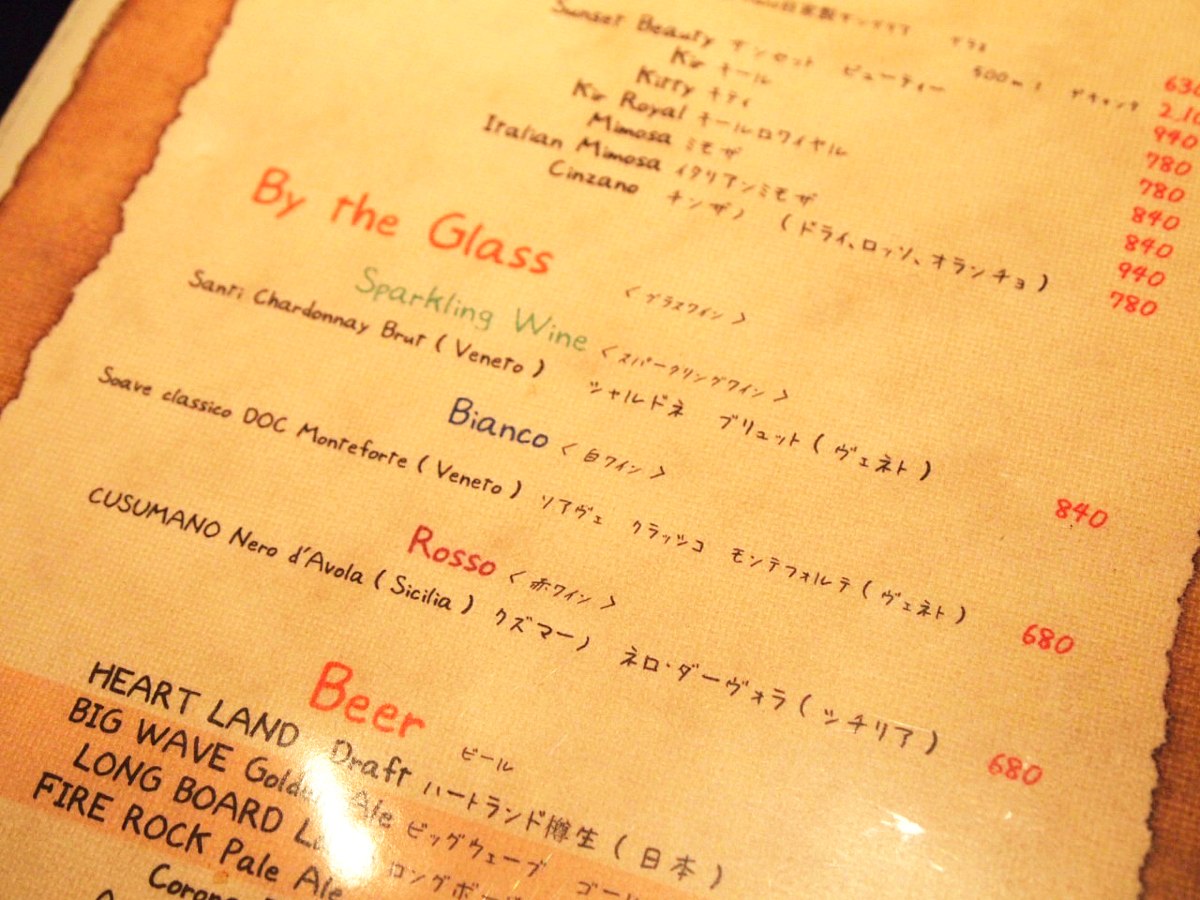 自家製サングリア グラス 630
500ml デキャンタ
Sunset Beauty サンセット ビューティー 940
Kir キール 780
Kitty キティ 780
Kir Royal キールロワイヤル 840
Mimosa ミモザ 840
Italian Mimosa イタリアンミモザ 940
Cinzano チンザノ (ドライ、ロッソ、オランチョ) 780
By the Glass <グラスワイン>
Sparkling Wine <スパークリングワイン>
Santi Chardonnay Brut (Veneto) シャルドネ ブリュット(ヴェネト) 840
Bianco <白ワイン>
Soave classico DOC Monteforte (Veneto) ソアヴェ クラッシコ モンテフォルテ(ヴェネト) 680
Rosso <赤ワイン>
CUSUMANO Nero d'Avola (Sicilia) クズマーノ ネロ・ダーヴォラ(シチリア) 680
Beer ビール
HEART LAND Draft ハートランド樽生(日本)
BIG WAVE Golden Ale ビッグウェーブ
LONG BOARD ロングボー
FIRE ROCK Pale Ale